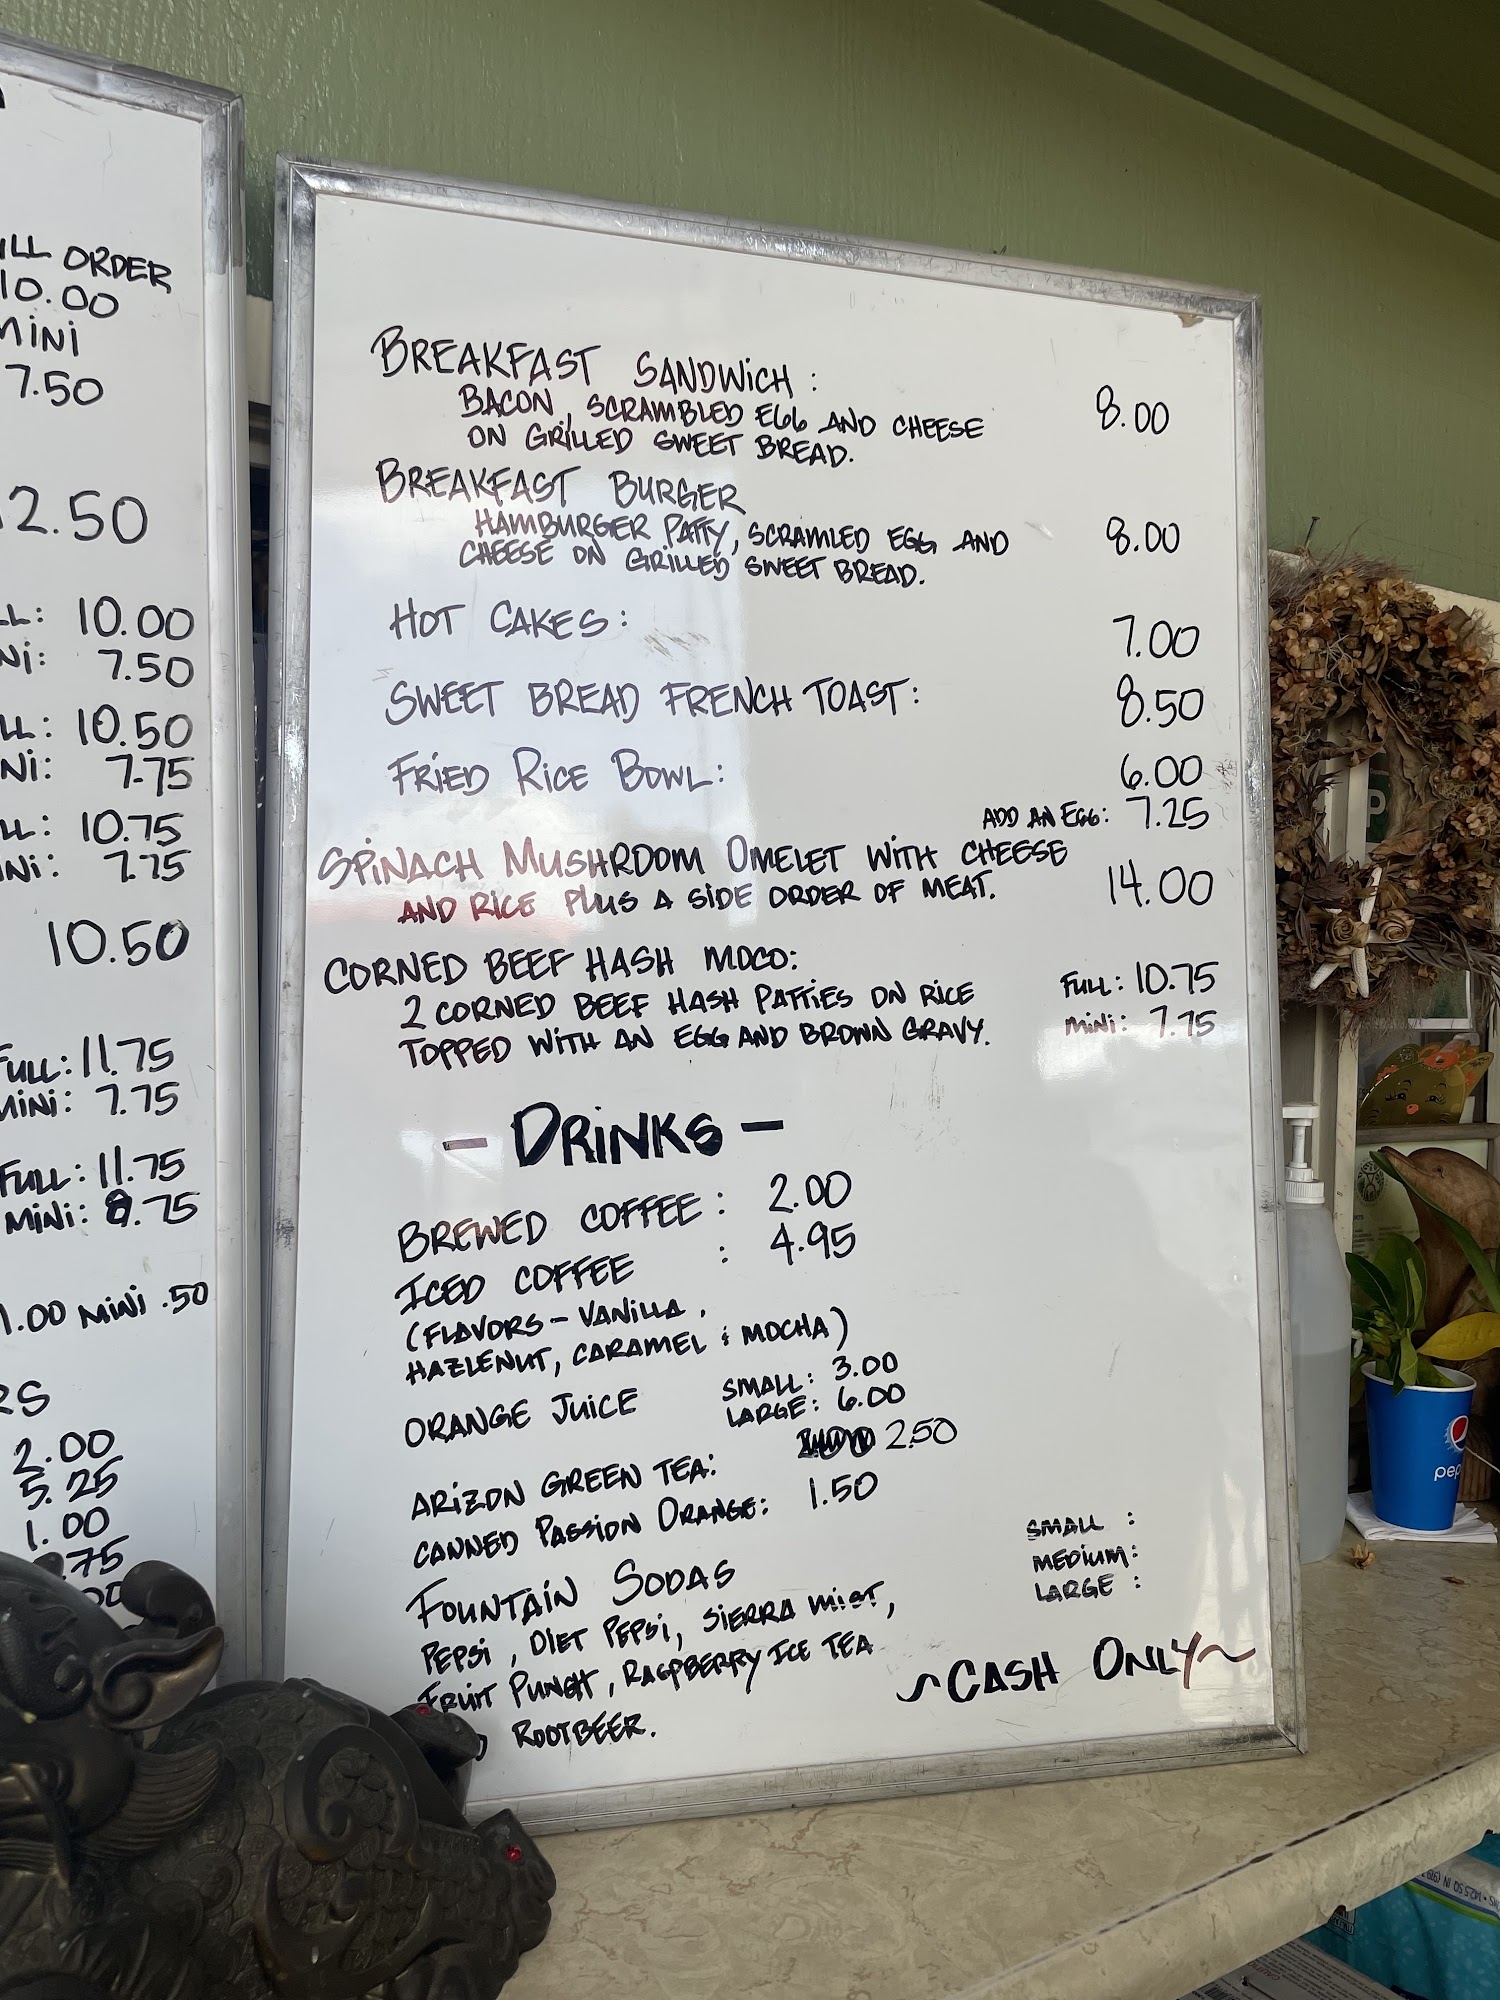 ILL ORDER
10.00
MINI
7.50
12.50
LL: 10.00
Ni: 7.50
LL: 10.50
Ni: 7.75
LL: 10.75
Ni: 7.75
10.50
FULL: 11.75
MINI: 7.75
FULL: 11.75
MINI: 8.75
1.00 MINI .50
RS
2.00
5.25
1.00
.75
BREAKFAST SANDWICH:
BACON, SCRAMBLED EGG AND CHEESE 8.00
ON GRILLED SWEET BREAD.
BREAKFAST BURGER
HAMBURGER PATTY, SCRAMLED EGG AND 8.00
CHEESE ON GRILLED SWEET BREAD.
HOT CAKES: 7.00
SWEET BREAD FRENCH TOAST: 8.50
FRIED RICE BOWL: 6.00
ADD AN EGG: 7.25
SPINACH MUSHROOM OMELET WITH CHEESE
AND RICE PLUS A SIDE ORDER OF MEAT. 14.00
CORNED BEEF HASH MOCO:
2 CORNED BEEF HASH PATTIES ON RICE FULL: 10.75
TOPPED WITH AN EGG AND BROWN GRAVY. MINI: 7.75
- DRINKS -
BREWED COFFEE: 2.00
ICED COFFEE : 4.95
(FLAVORS - VANILLA,
HAZLENUT, CARAMEL & MOCHA)
ORANGE JUICE SMALL: 3.00
LARGE: 6.00
ARIZON GREEN TEA: 2.50
CANNED PASSION ORANGE: 1.50
FOUNTAIN SODAS
PEPSI, DIET PEPSI, SIERRA MIST,
FRUIT PUNCH, RASPBERRY ICE TEA
ROOTBEER.
SMALL :
MEDIUM:
LARGE :
~CASH ONLY~
P
pep